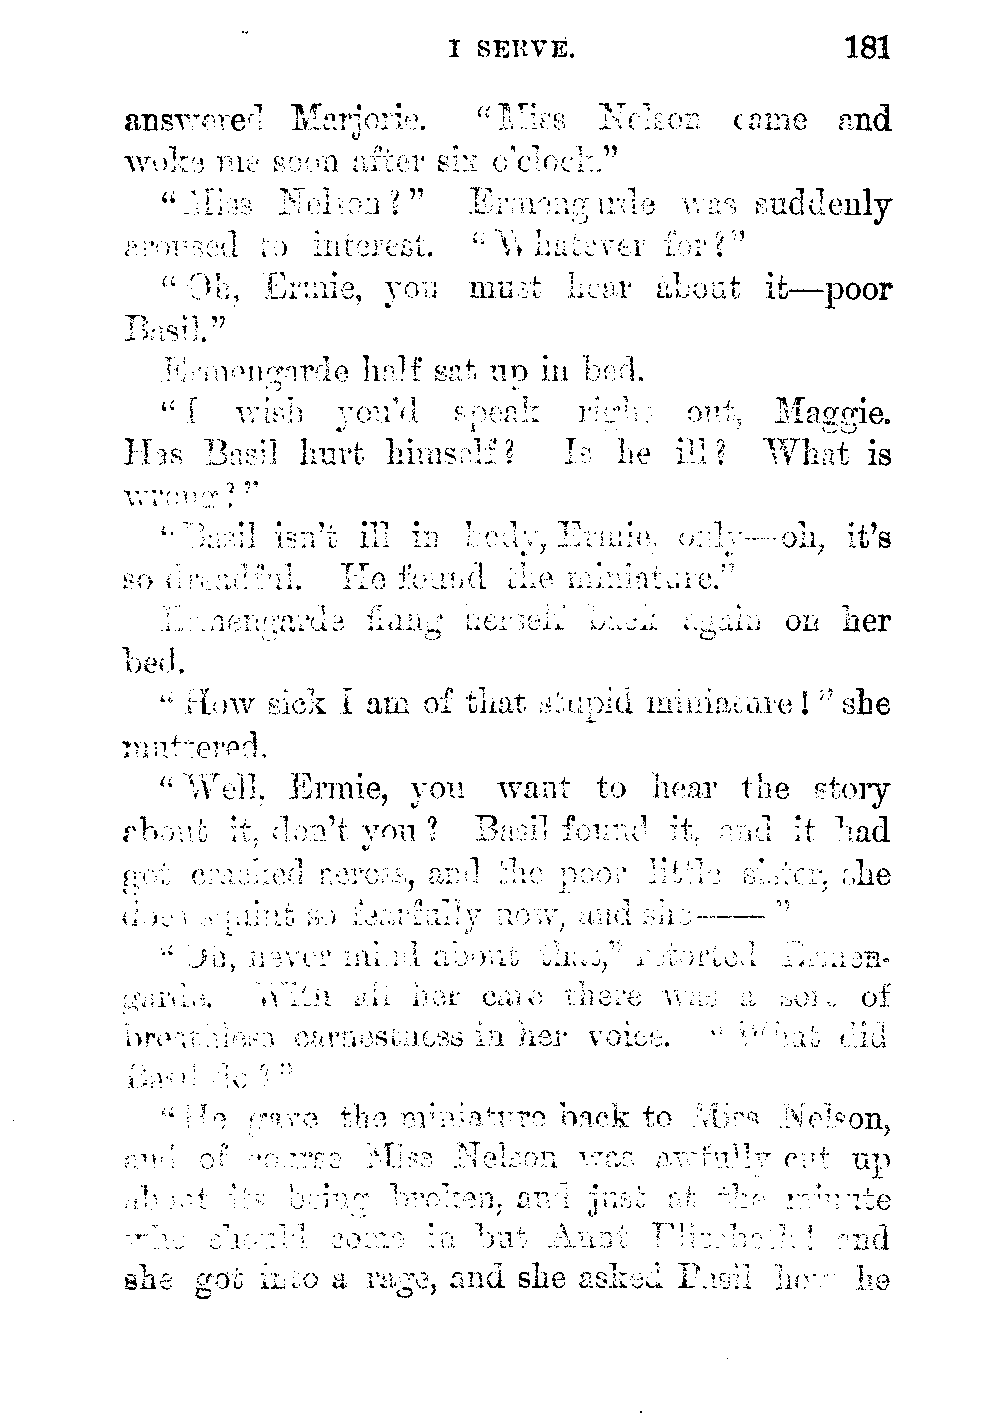 I SERVE. 181
answered Marjorie. “Miss Nelson came and
woke me soon after six o'clock.”
“Miss Nelson?” Ermengarde was suddenly
aroused to interest. “Whatever for?”
“Oh, Ermie, you must hear about it—poor
Basil.”
Ermengarde half sat up in bed.
“I wish you'd speak right out, Maggie.
Has Basil hurt himself? Is he ill? What is
wrong?”
“Basil isn't ill in body, Ermie, only—oh, it's
so dreadful. He found the miniature.”
Ermengarde flung herself back again on her
bed.
“How sick I am of that stupid miniature!” she
muttered.
“Well, Ermie, you want to hear the story
about it, don't you? Basil found it, and it had
got cracked across, and the poor little sister, she
does squint so fearfully now, and she——”
“Oh, never mind about that,” retorted Ermen-
garde. With all her care there was a sort of
breathless earnestness in her voice. “What did
Basil do?”
“He gave the miniature back to Miss Nelson,
and of course Miss Nelson was awfully cut up
about its being broken, and just at the minute
who should come in but Aunt Elizabeth! and
she got into a rage, and she asked Basil how he